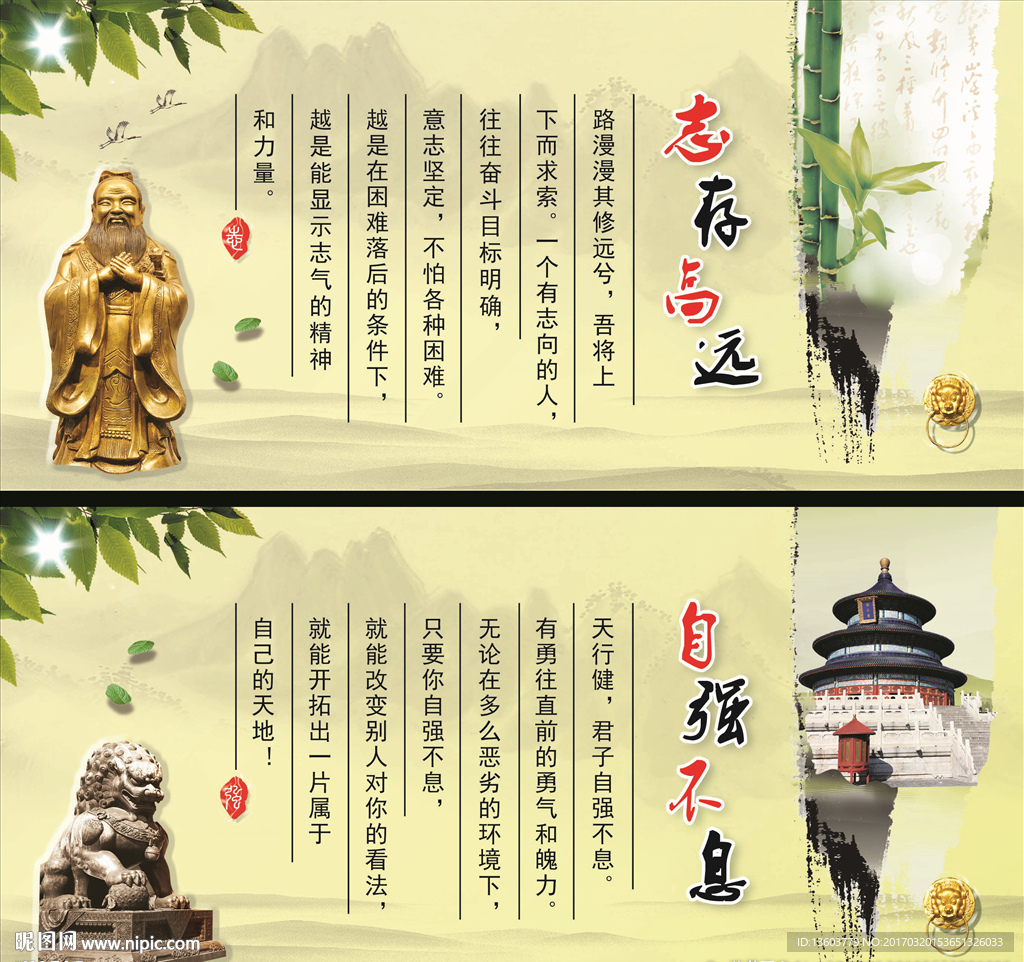 志存高远
路漫漫其修远兮，吾将上
下而求索。一个有志向的人，
往往奋斗目标明确，
意志坚定，不怕各种困难。
越是在困难落后的条件下，
越是能显示志气的精神
和力量。
志
自强不息
天行健，君子自强不息。
有勇往直前的勇气和魄力。
无论在多么恶劣的环境下，
只要你自强不息，
就能改变别人对你的看法，
就能开拓出一片属于
自己的天地！
强
昵图网 www.nipic.com
ID:13603779 NO:20170320153651326033